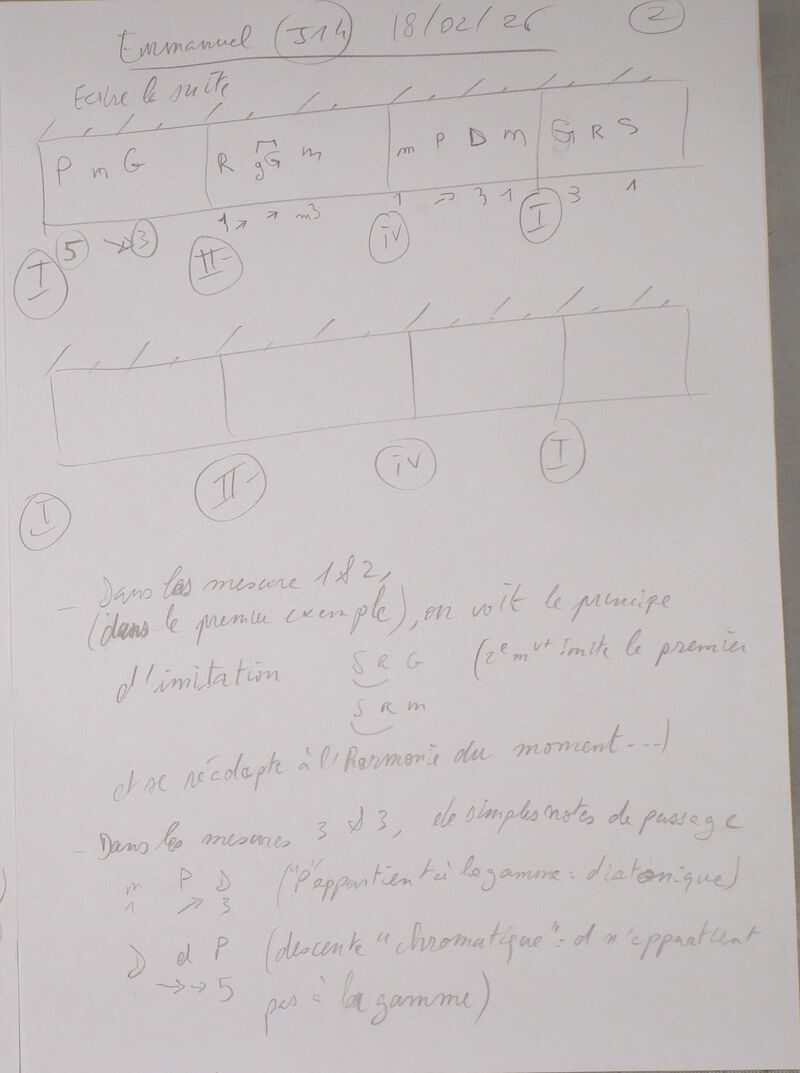 Emmanuel (J14) 18/02/26 2
Ecrire la suite
P m G R gG m m P D m G R S
5 3 1 m3 1 3 1 3 1
I II- IV I
I II- IV I
- Dans les mesure 1 & 2,
(dans le premier exemple), on voit le principe
d'imitation S R G (2e mvt imite le premier
S R m
et se réadapte à l'harmonie du moment...)
- Dans les mesures 3 & 3, de simples notes de passage
m P D ("P" appartient à la gamme = diatonique)
1 → 3
D d P (descente "chromatique" = d n'appartient
→ → 5 pas à la gamme)